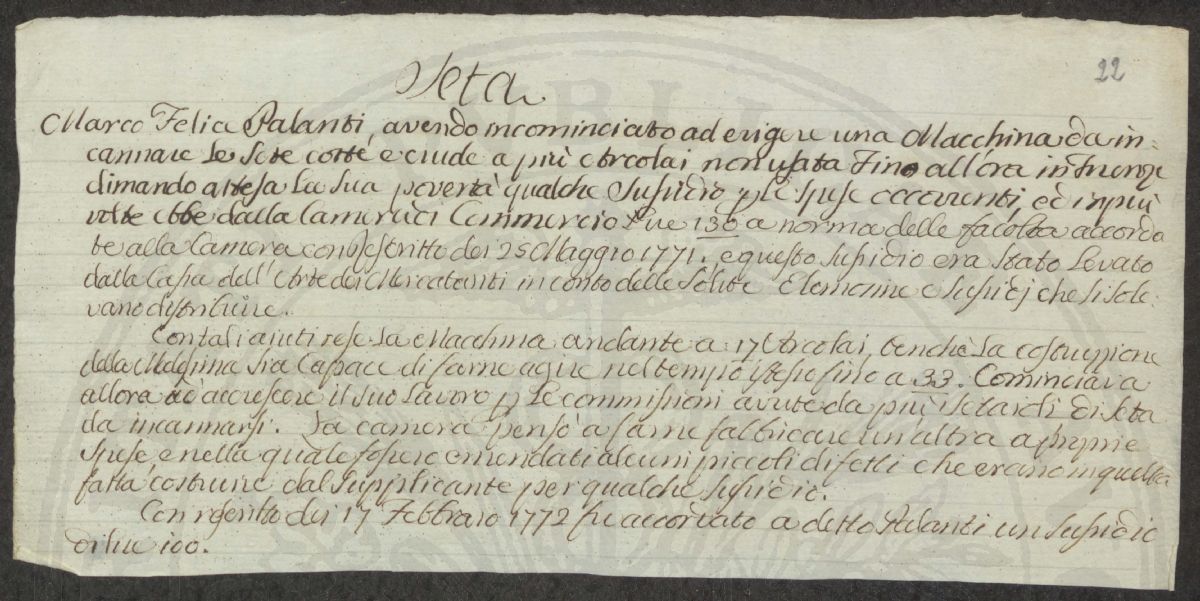 Seta
22
Marco Felice Palanti, avendo incominciato ad erigere una Macchina da in=
cannare le Sete cotte e crude a più Arcolai non usata Fino allora in Firenze
dimando attesa la sua povertà qualche Susidio p le spese occorrenti, ed in più
volte ebbe dalla Camera di Commercio Lire 130 a norma delle facoltà accorda
te alla Camera con Rescritto dei 25 Maggio 1771. e questo susidio era stato Levato
dalla Cassa dell'Arte dei Mercatanti in conto delle Solite Elemosine e Susidj che si sole
vano distribuire.
Con tali ajuti rese la Macchina andante a 17 Arcolai, benchè la costruzzione
della Medesima sia Capace di farne agire nel tempo istesso fino a 33. Cominciava
allora ad accrescere il suo Lavoro p Le commissioni avute da più setaioli di Seta
da incannarsi. La Camera pensò a farne fabbricare un'altra a proprie
spese, e nella quale fossero emendati alcuni piccoli difetti che erano in quella
fatta costruire dal supplicante per qualche susidio.
Con rescritto dei 17 Febbraio 1772 fu accordato a detto Palanti un Sussidio
di lire 100.